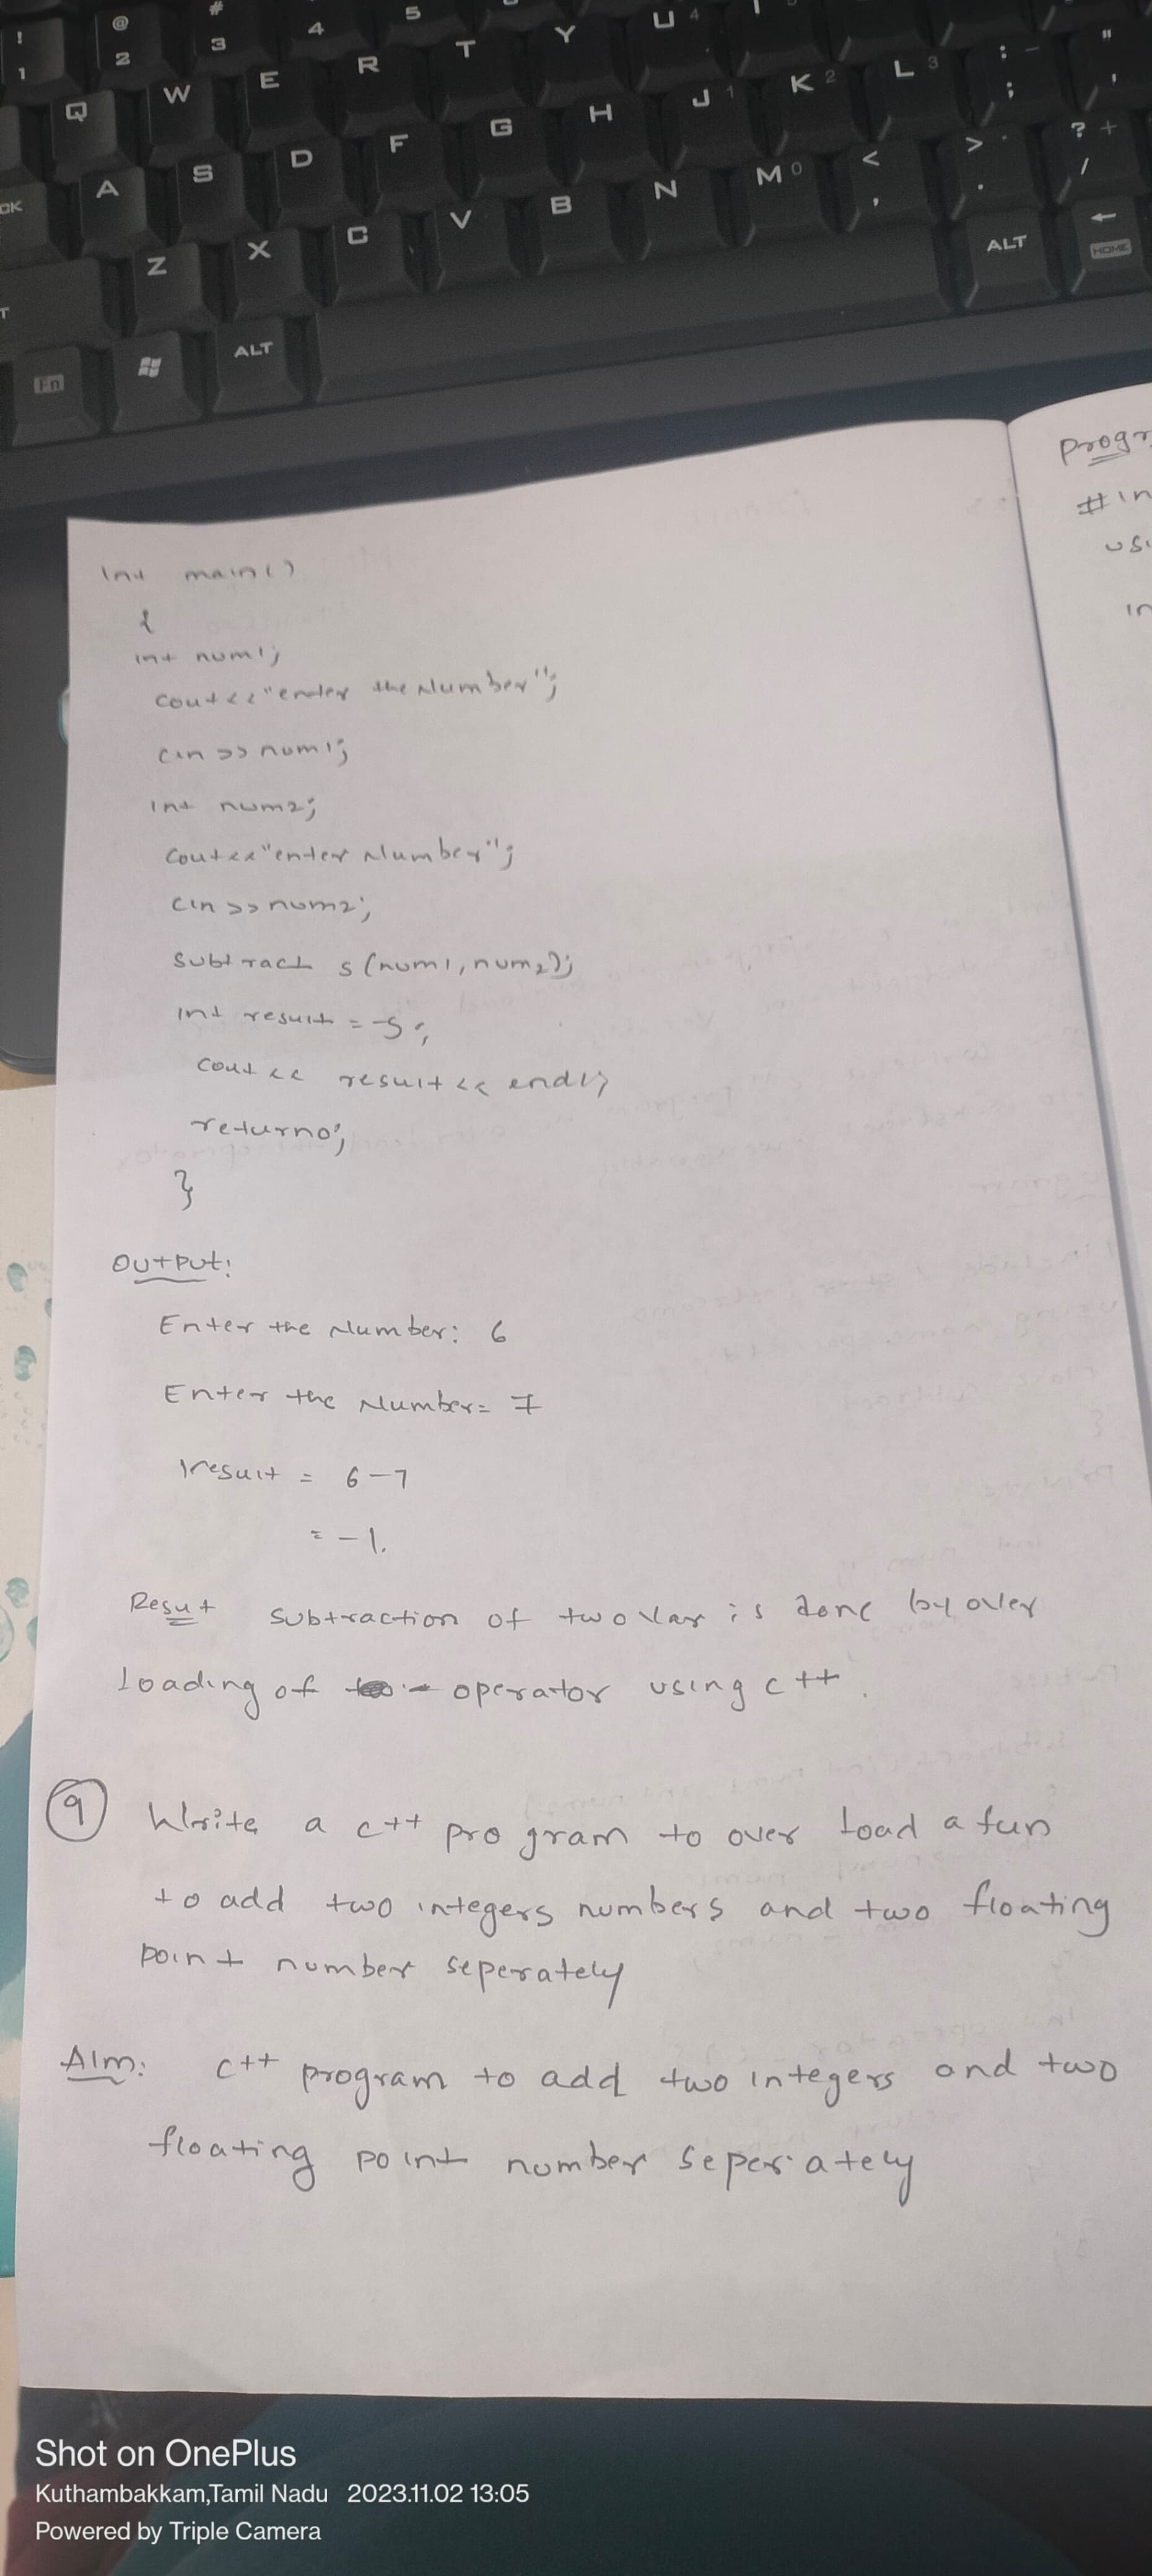 ! @ # 5 U 4
1 2 3 4
Q W E R T Y
A S D F G H J 1 K 2 L 3 : –
;
" '
Z X C V B N M 0 < , > . ? + /
Fn ALT ALT ← HOME
int main()
{
int num1;
cout<<"enter the Number";
cin >> num1;
int num2;
cout<<"enter Number";
cin >> num2;
subtract s(num1, num2);
int result = -s;
cout << result << endl;
return0;
}
Output:
Enter the Number: 6
Enter the Number= 7
result = 6-7
= -1.
Resut subtraction of two var is done by over
loading of - operator using c++.
9 Write a c++ program to over load a fun
to add two integers numbers and two floating
point number seperately
Aim: c++ program to add two integers and two
floating point number seperately
Progr
#in
usi
in
Shot on OnePlus
Kuthambakkam,Tamil Nadu 2023.11.02 13:05
Powered by Triple Camera